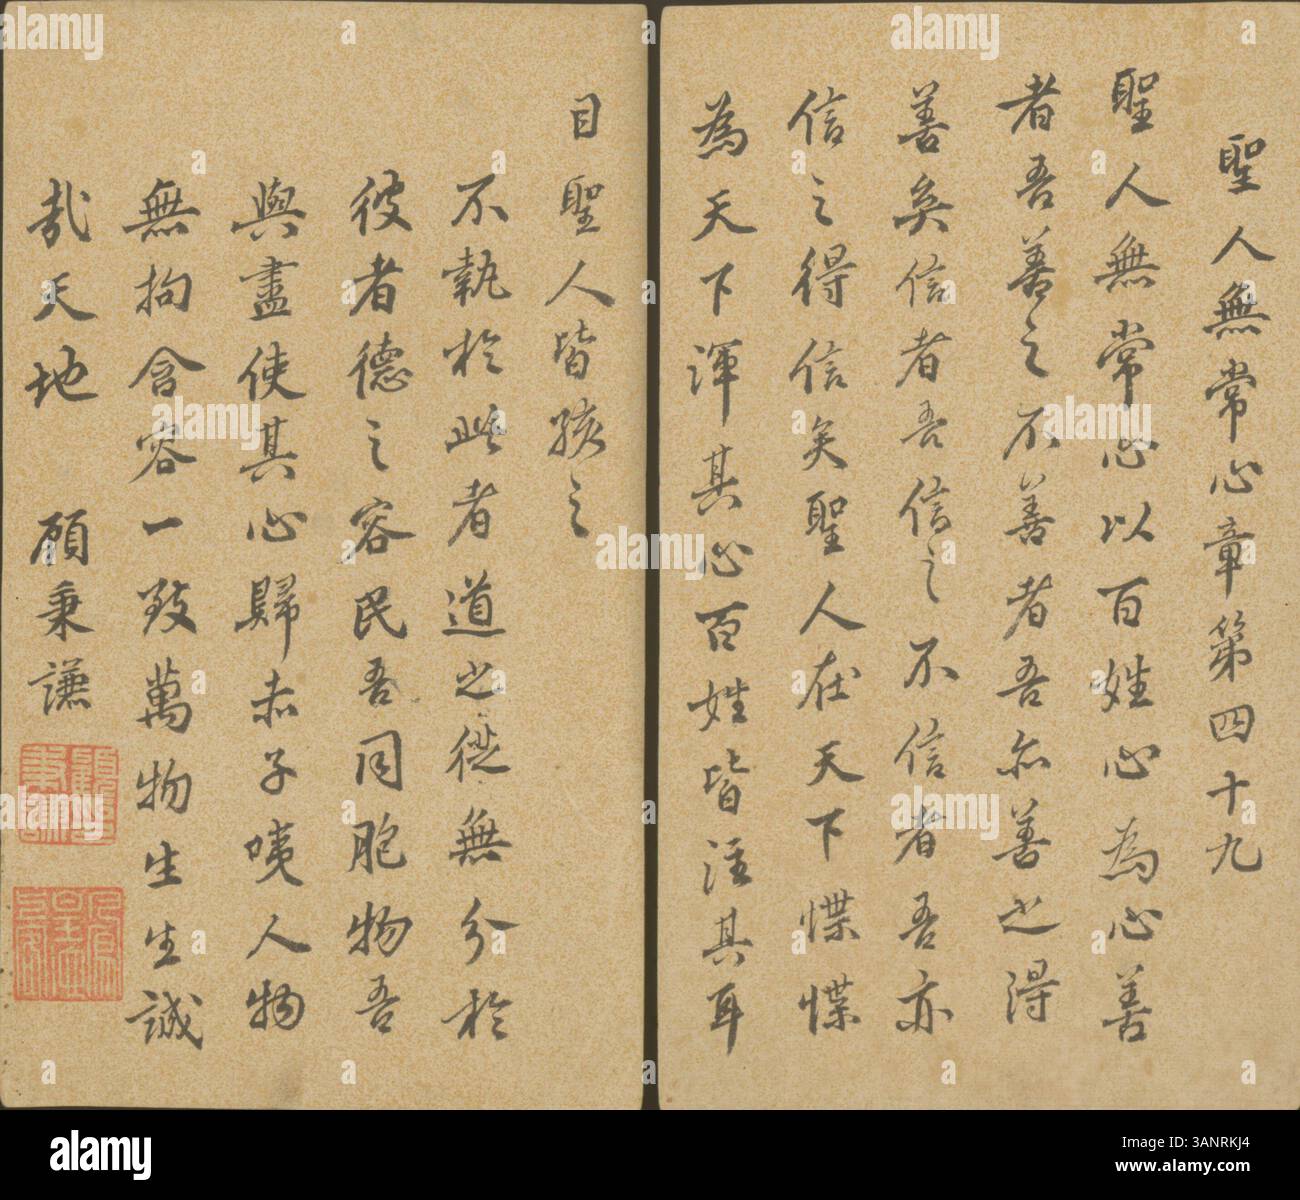 聖人無常心章第四十九
聖人無常心以百姓心為心善
者吾善之不善者吾亦善之得
善矣信者吾信之不信者吾亦
信之得信矣聖人在天下惵惵
為天下渾其心百姓皆注其耳
目聖人皆孩之
不執於此者道之從無分於
彼者德之容民吾同胞物吾
與盡使其心歸赤子噢人物
無拘含容一致萬物生生誠
哉天地 顧秉謙
alamy
Image ID: 3ANRKJ4
www.alamy.com